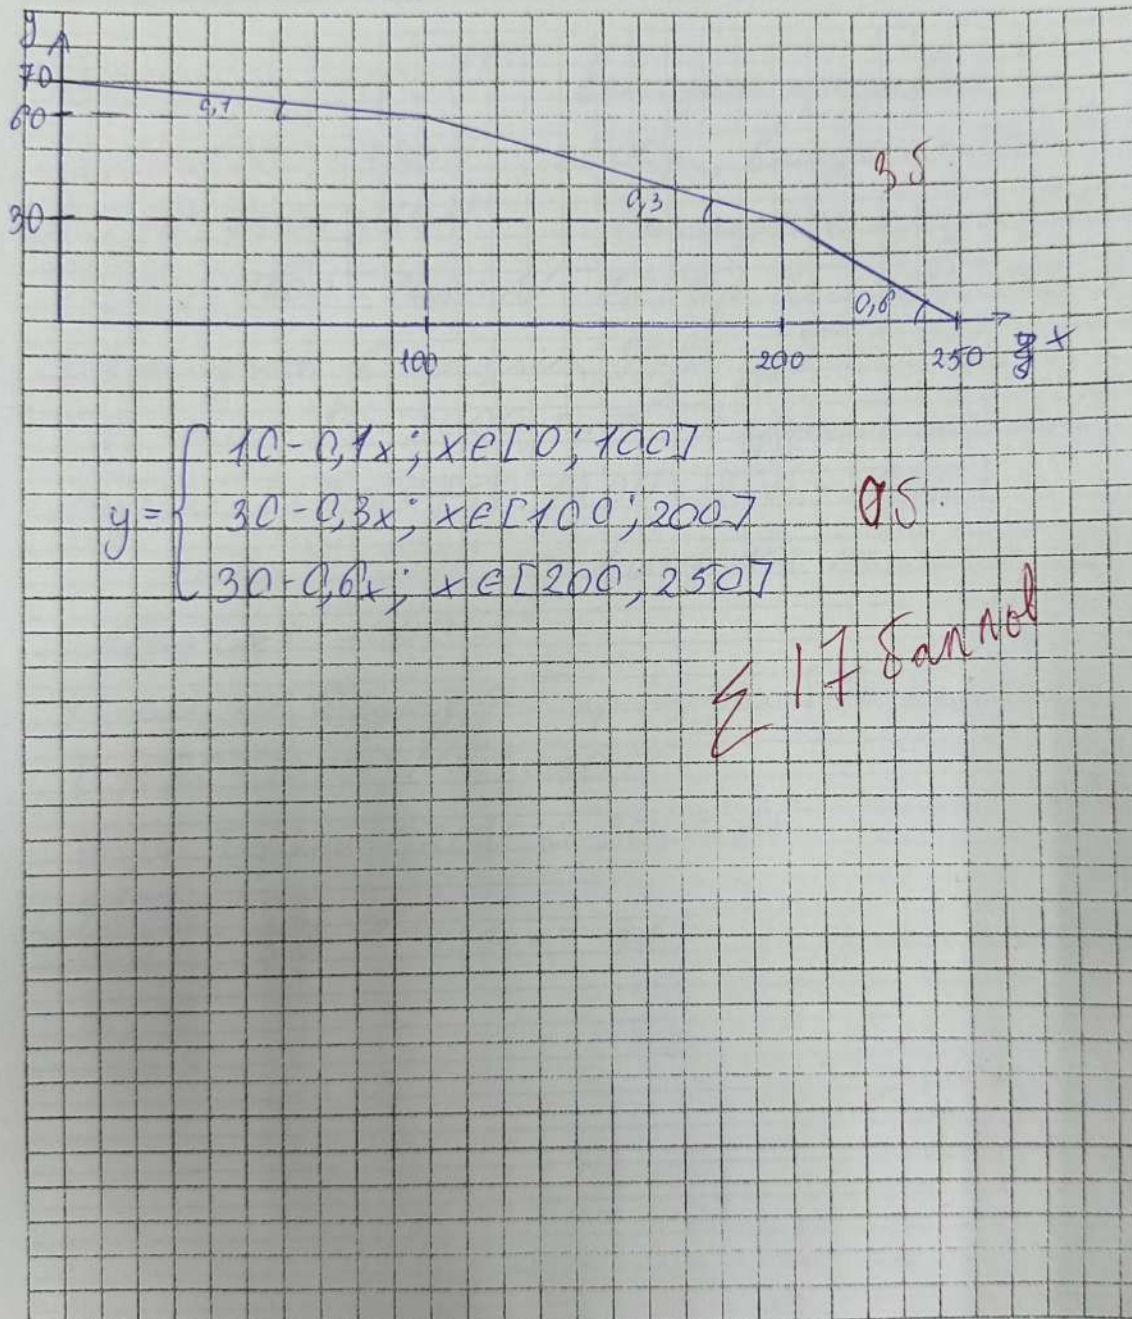 y
70
60
0,1
30
0,3
3 б
0,6
100
200
250
x
10-0,1x; x∈[0; 100]
y= 30-0,3x; x∈[100; 200]
0 б.
30-0,6x; x∈[200; 250]
Σ 17 баллов